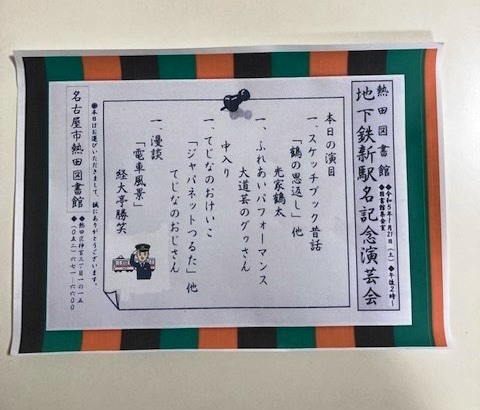 熱田図書館
地下鉄新駅名記念演芸会
◆図書館集会室
本日の演目
一、スケッチブック昔話
「鶴の恩返し」他
光家鶴太
一、ふれあいパフォーマンス
大道芸のグゥさん
中入り
一、てじなのおけいこ
「ジャパネットつるた」他
てじなのおじさん
一、漫談
「電車風景」
経大亭勝笑
◆本日はお運びいただきまして、誠にありがとうございます。
名古屋市熱田図書館
◆熱田区神宮三丁目一の一五
◆(〇五二)六七一-六六〇〇